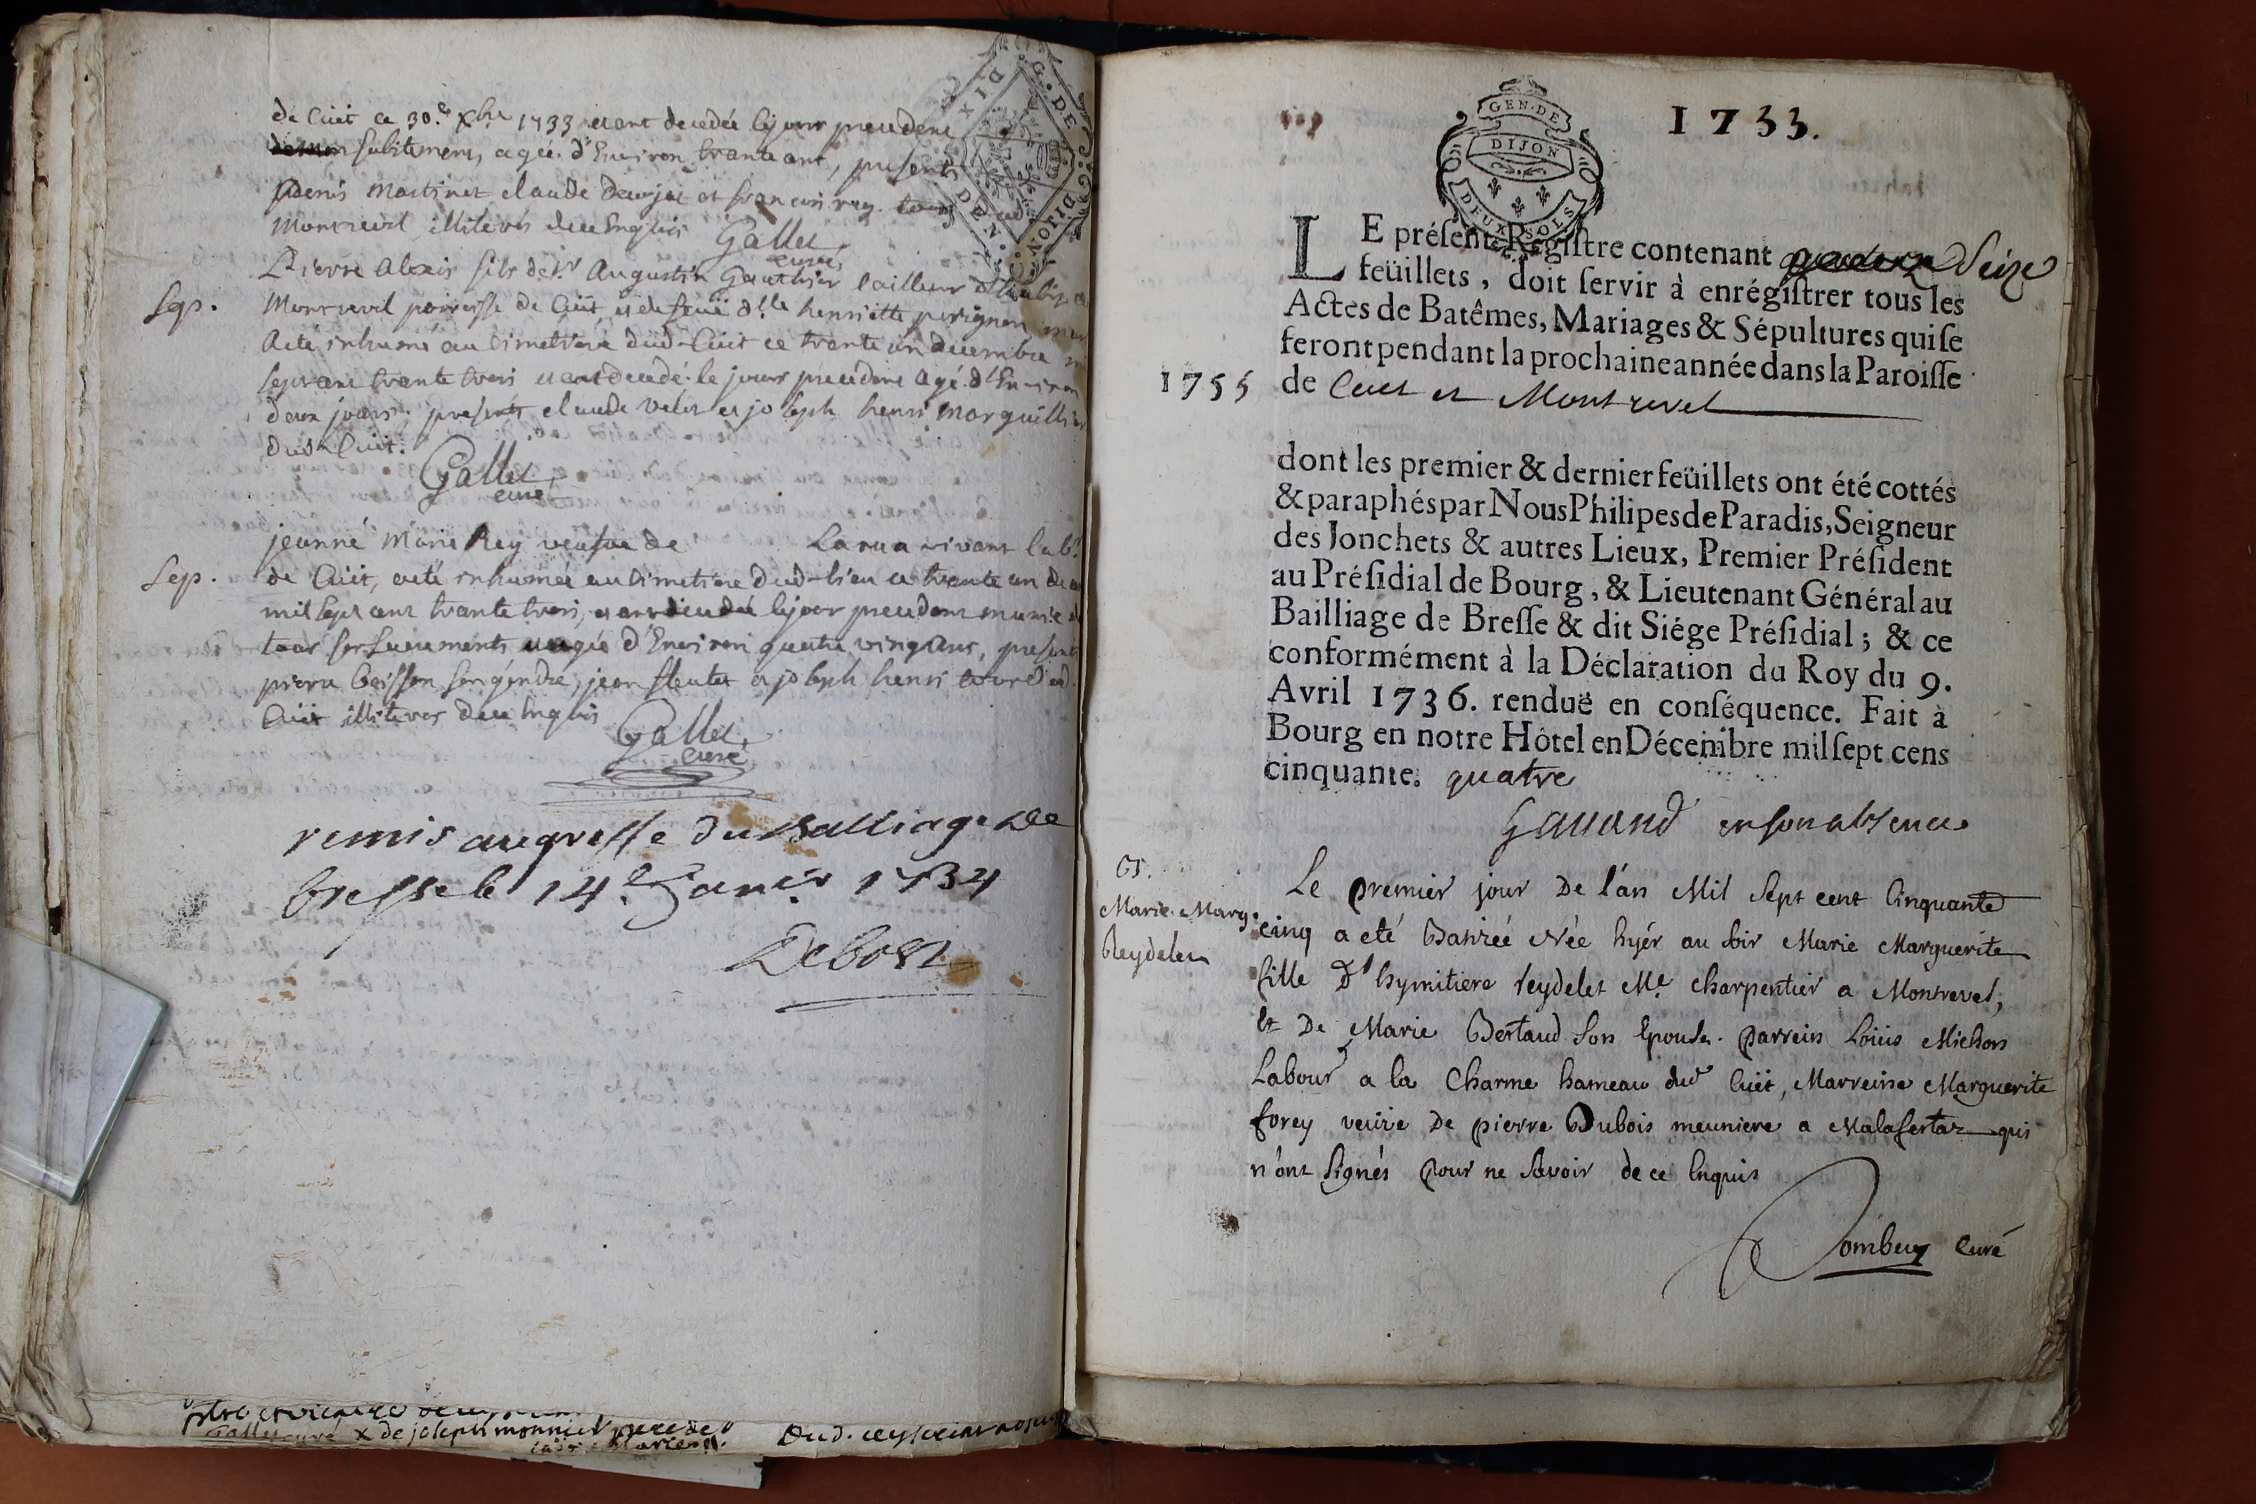 de Cuit ce 30.e Xbre 1733 etant decedée le jour precedent
subitement, agée d'Environ trante ans, presents
denis Martinet, claude et francois rey
Montrevil, illiterés de ce Enquis Gallet
curé
Sep.
Pierre Alexis fils de Sr Augustin Gauthier tailleur d'habits
Montrevil parroisse de Cuit, et de feüe d.lle henriette perignon
a eté inhumé au cimetiere dud. Cuit ce trante un decembre
sept cent trante trois etant decedé le jour precedent agé d'Environ
deux jours, presents claude velut et joseph henri marguillier
dud. Cuit.
Gallet
curé
Sep.
jeanne Marie Rey veufve de Larua vivant lab.r
de Cuit, a eté inhumée au cimetiere dud. lieu ce trante un
mil sept cent trante trois, etant decedée le jour precedent munie
tous ses sacrements agée d'Environ quatre vingt ans, presents
pierre boisson son gendre, jean et joseph henri
Cuit illiterés de ce Enquis
Gallet
curé
remis au greffe du Balliage De
bresse le 14.e Janer 1734
Debost
de joseph monnier
GEN. DE
DIJON
DEUX SOLS
G. DE
DIJON
1733.
LE préſent Regiſtre contenant Seize
feüillets, doit ſervir à enrégiſtrer tous les
Actes de Batêmes, Mariages & Sépultures qui ſe
feront pendant la prochaine année dans la Paroiſſe
1755 de Cuet et Montrevel
dont les premier & dernier feüillets ont été cottés
& paraphés par Nous Philipes de Paradis, Seigneur
des Jonchets & autres Lieux, Premier Préſident
au Préſidial de Bourg, & Lieutenant Général au
Bailliage de Breſſe & dit Siége Préſidial; & ce
conformément à la Déclaration du Roy du 9.
Avril 1736. renduë en conſéquence. Fait à
Bourg en notre Hôtel en Décembre mil ſept cens
cinquante. quatre
Gauand en son absence
Marie Marg.
Reydelet
Le premier jour De l'an Mil Sept cent Cinquante
cinq a eté Batizée Née hyér au soir Marie Marguerite
fille D' hymitiere reydelet Me. charpentier a Montrevel,
Et De Marie Bertaud Son Epouse. parrein Loüis Michon
Labour a la Charme hameau dud Cüet, Marreine Marguerite
forey veuve De pierre Dubois meuniere a Malafertaz qui
n'ont Signés pour ne Savoir de ce Enquis
Dombey Curé